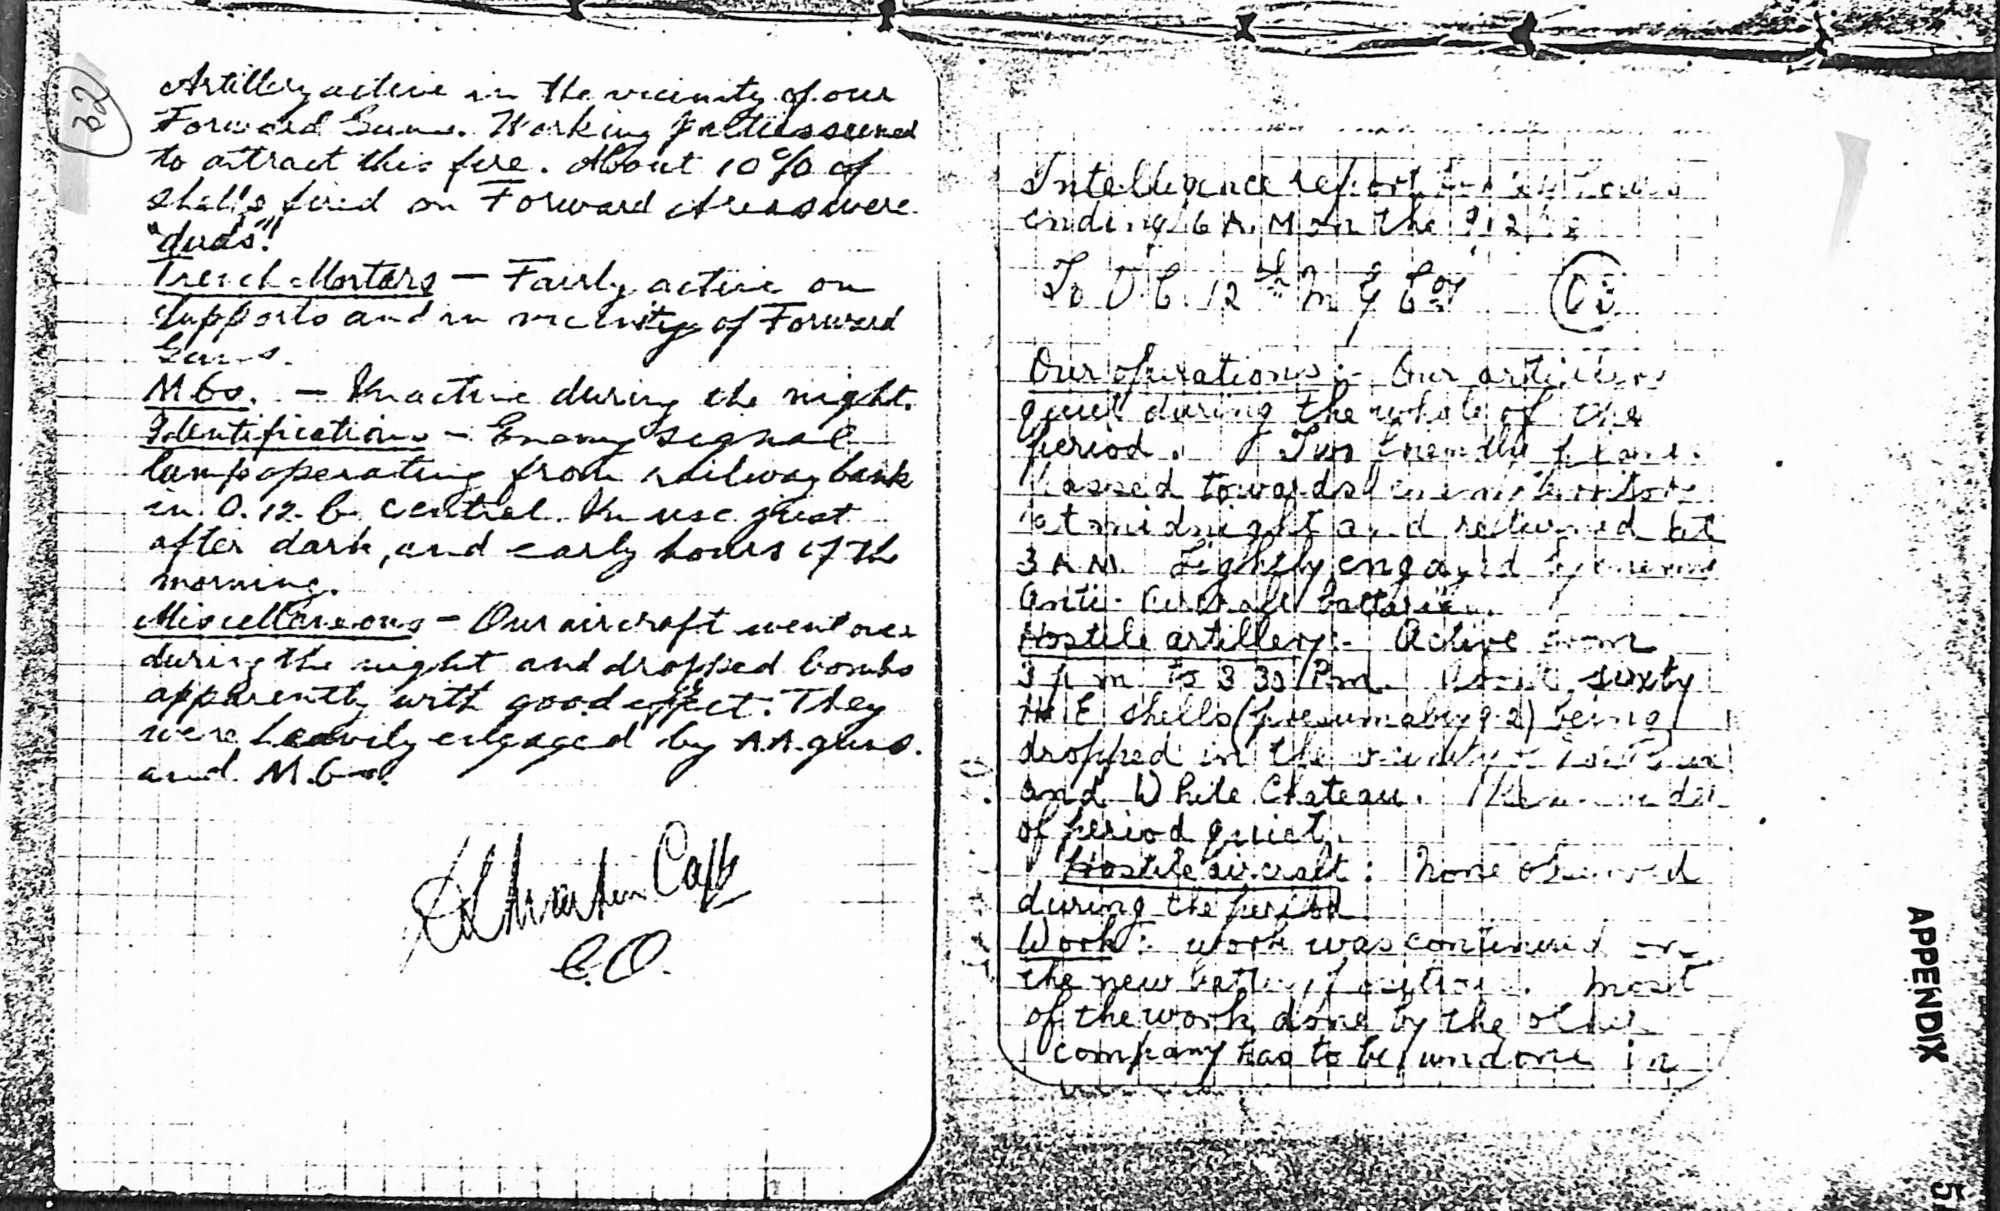 22
Artillery active in the vicinity of our
Forward Guns. Working parties seemed
to attract this fire. About 10% of
shells fired on Forward Areas were
"duds".
Trench Mortars — Fairly active on
Supports and in vicinity of Forward
Guns.
M.Gs. — Inactive during the night.
Identifications — Enemy signal
lamp operating from railway bank
in O.12.b. central. In use just
after dark, and early hours of the
morning.
Miscellaneous — Our aircraft went over
during the night and dropped bombs
apparently with good effect. They
were heavily engaged by AA. guns.
and M.Gs.
Capt
C.O.
Intelligence report
ending 6 A.M on the
To O.C. 12th M G Coy
Our operations:- Our artillery
quiet during the whole of the
period. Two friendly planes
passed towards enemy territory
at midnight and returned at
3 AM. Lightly engaged by enemy
anti-aircraft batteries.
Hostile artillery:- Active from
3 pm to 3 30 Pm. About sixty
H.E shells (presumably 9.2) being
dropped in the vicinity
and White Chateau. Remainder
of period quiet.
Hostile aircraft: None observed
during the period
Work: work was continued on
the new battery position. Most
of the work done by the other
company has to be undone in
APPENDIX
5